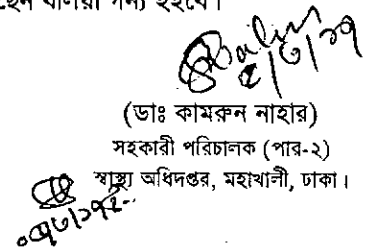 হেন বলিয়া গন্য হইবে।
(ডাঃ কামরুন নাহার)
সহকারী পরিচালক (পার-২)
স্বাস্থ্য অধিদপ্তর, মহাখালী, ঢাকা।